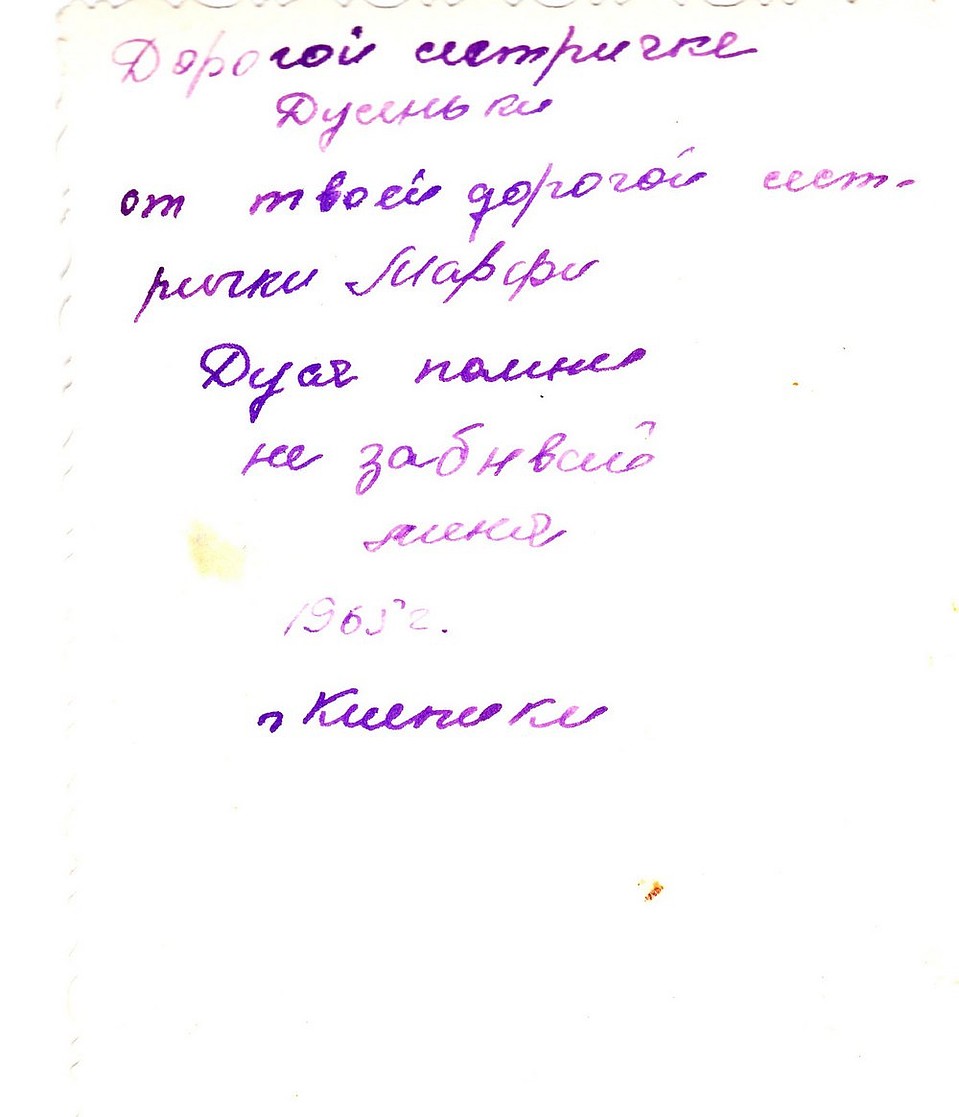 Дорогой сестричке
Дусеньки
от твоей дорогой сест-
рички Марфи
Дуся помни
не забивай
миня
1965 г.